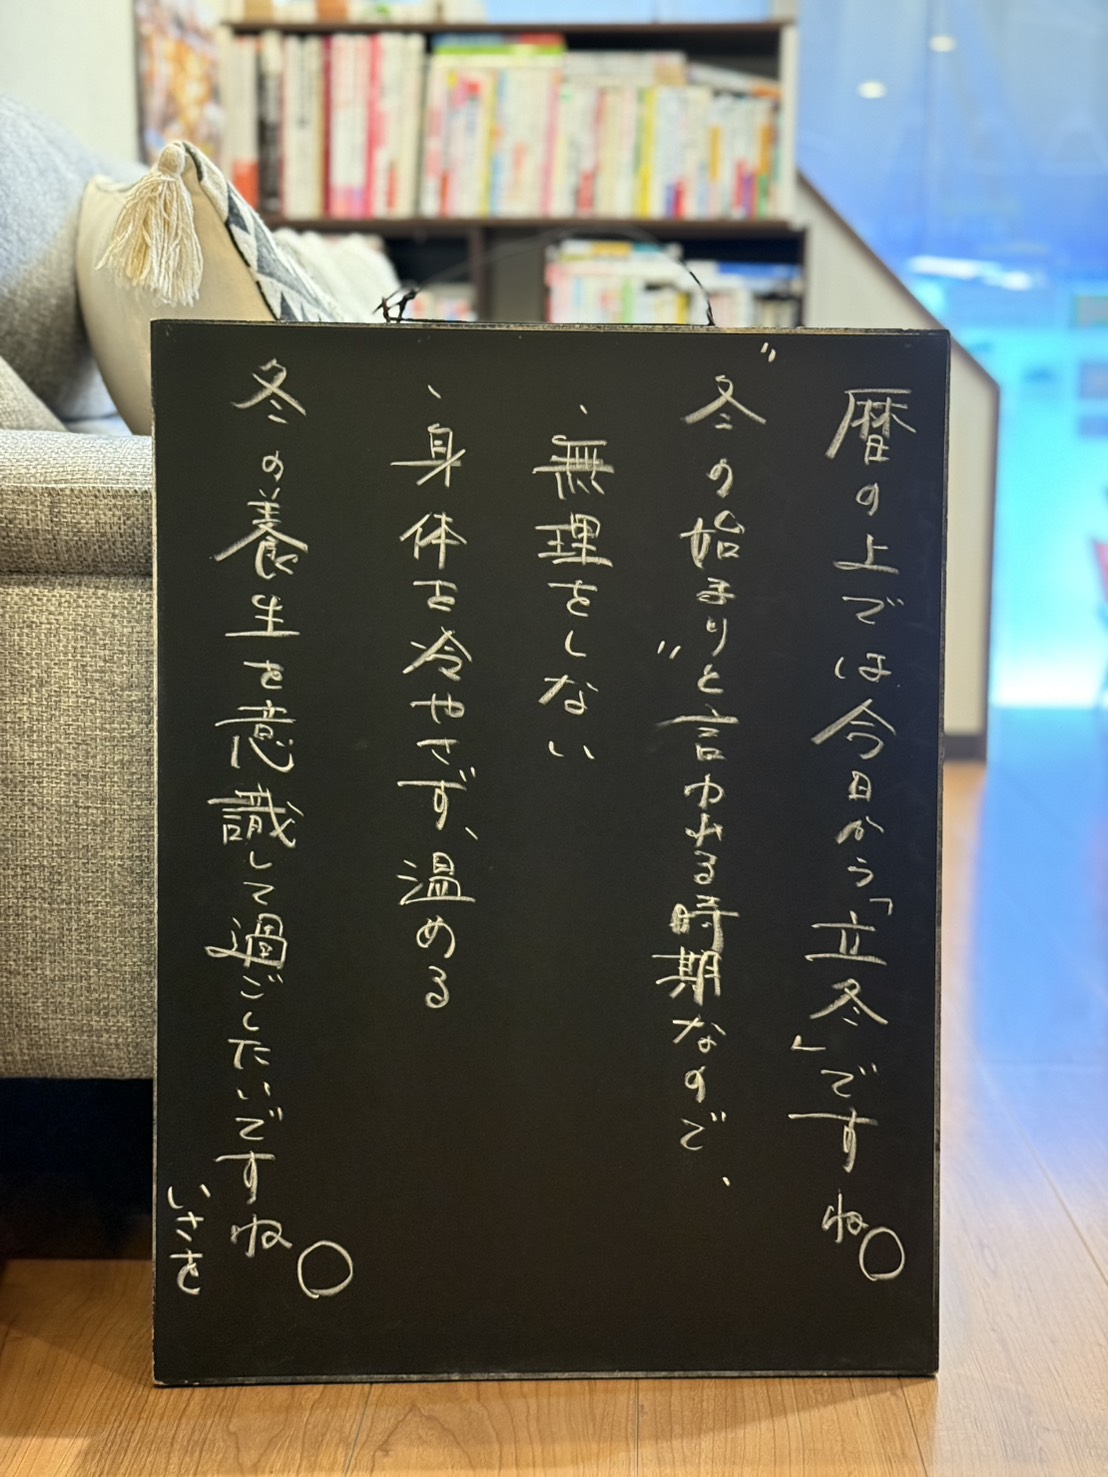 暦の上では今日から「立冬」ですね。
"冬の始まり"と言われる時期なので、
、無理をしない
、身体を冷やさず、温める
冬の養生を意識して過ごしたいですね。
いさを